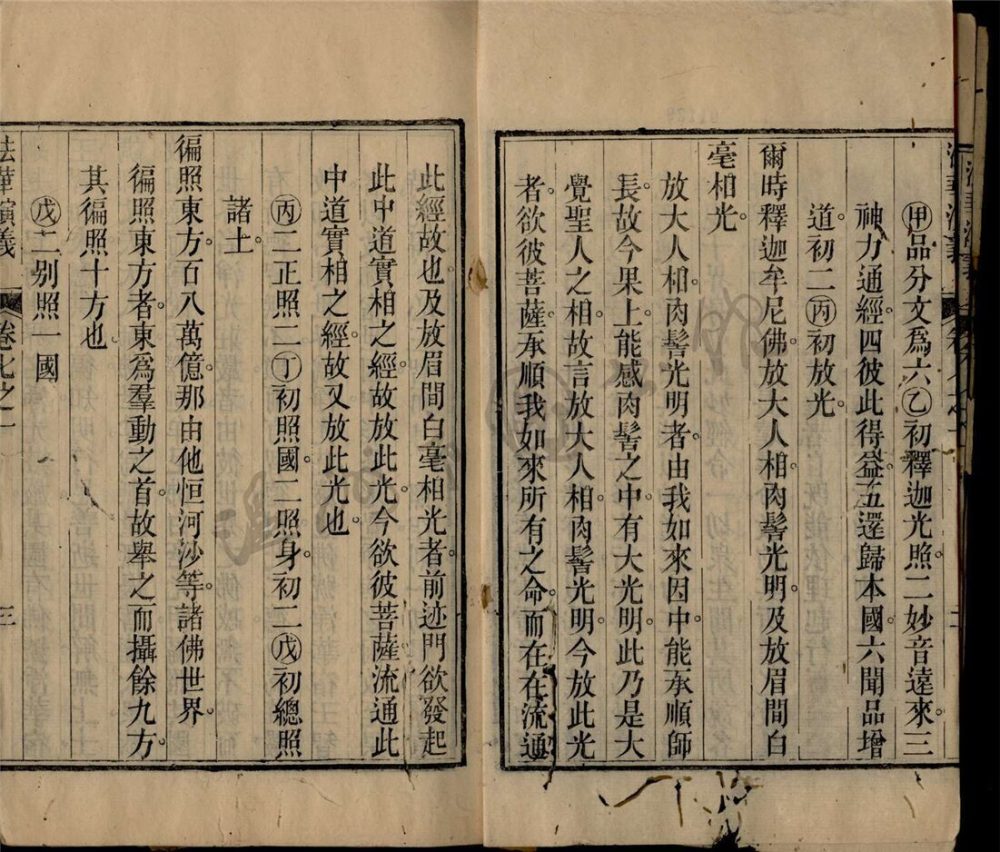 ㊙甲品分文爲六㊁乙初釋迦光照二妙音遠來三
神力通經四彼此得益五還歸本國六聞品增
道初二丙初放光
爾時釋迦牟尼佛放大人相肉髻光明及放眉間白
毫相光
放大人相肉髻光明者由我如來因中能承順師
長故今果上能感肉髻之中有大光明此乃是大
覺聖人之相故言放大人相肉髻光明今放此光
者欲彼菩薩承順我如來所有之命而在在流通
此經故也及放眉間白毫相光者前迹門欲發起
此中道實相之經故放此光今欲彼菩薩流通此
中道實相之經故又放此光也
丙二正照二丁初照國二照身初二戊初總照
諸土
徧照東方百八萬億那由他恒河沙等諸佛世界
徧照東方者東爲羣動之首故舉之而攝餘九方
其徧照十方也
戊二別照一國
法華演義 卷七之一 三